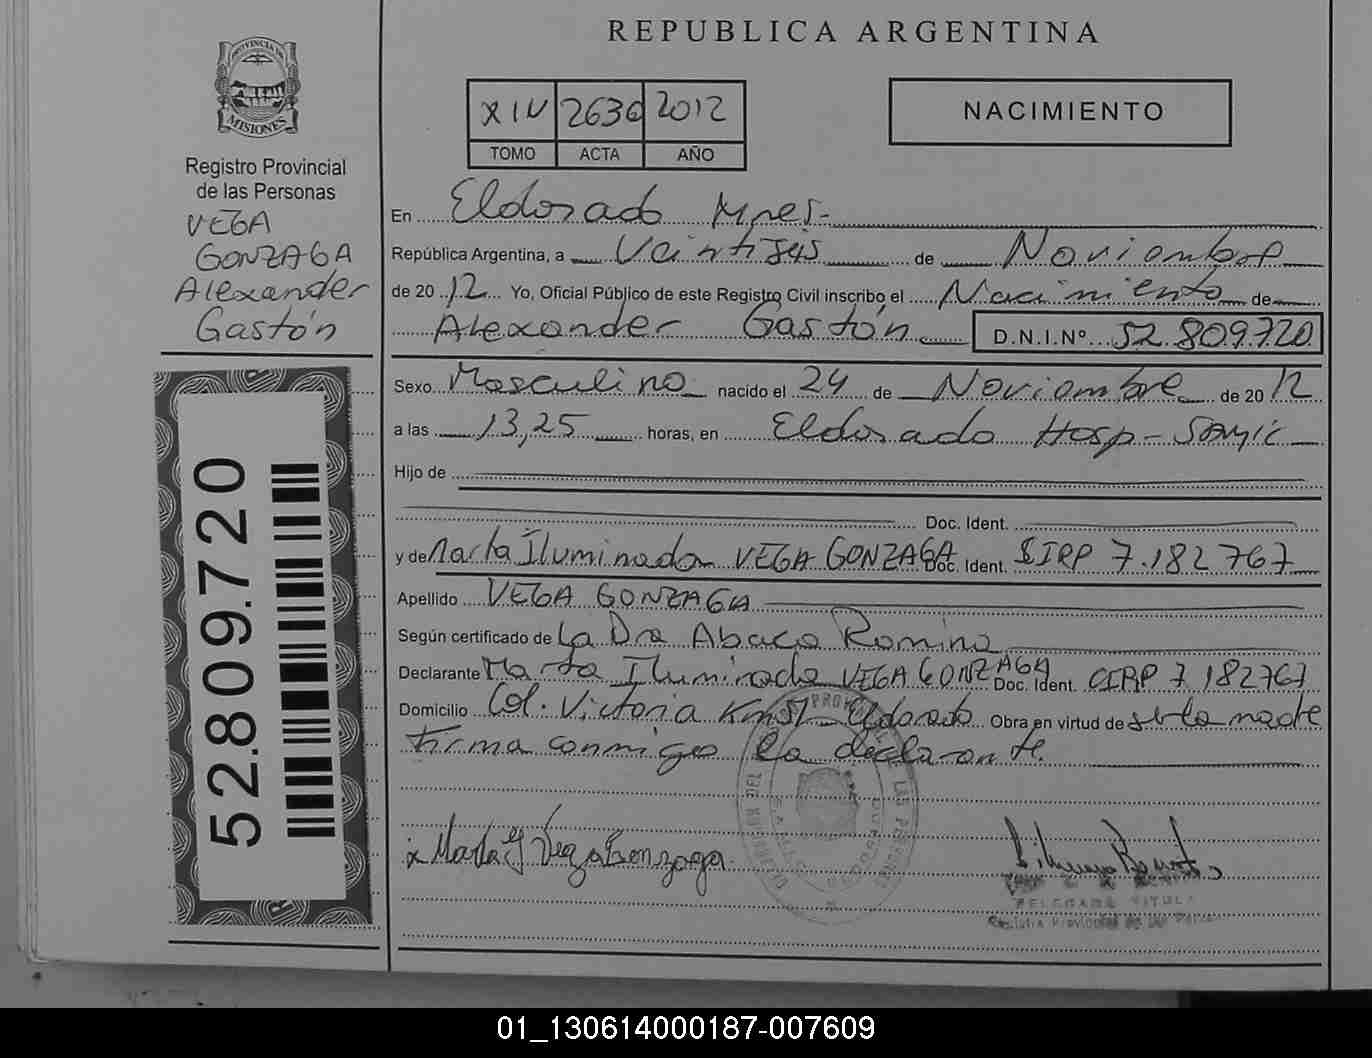 REPUBLICA ARGENTINA
PROVINCIA DE
MISIONES
Registro Provincial
de las Personas
VEGA
GONZAGA
Alexander
Gastón
52.809.720
XIV 2636 2012
TOMO ACTA AÑO
NACIMIENTO
En Eldorado Mnes.
República Argentina, a Veintiseis de Noviembre
de 2012 Yo, Oficial Público de este Registro Civil inscribo el Nacimiento de
Alexander Gastón D.N.I.Nº 52.809.720
Sexo Masculino nacido el 24 de Noviembre de 2012
a las 13,25 horas, en Eldorado Hosp-Samic
Hijo de
Doc. Ident.
y de Marta Iluminada VEGA GONZAGA Doc. Ident. CIRP 7.182767
Apellido VEGA GONZAGA
Según certificado de La Dra Abaca Romina
Declarante Marta Iluminada VEGA GONZAGA Doc. Ident. CIRP 7.182767
Domicilio Col. Victoria Km Eldorado Obra en virtud de madre
firma conmigo la declarante.
x Marta Vega Gonzaga
01_130614000187-007609